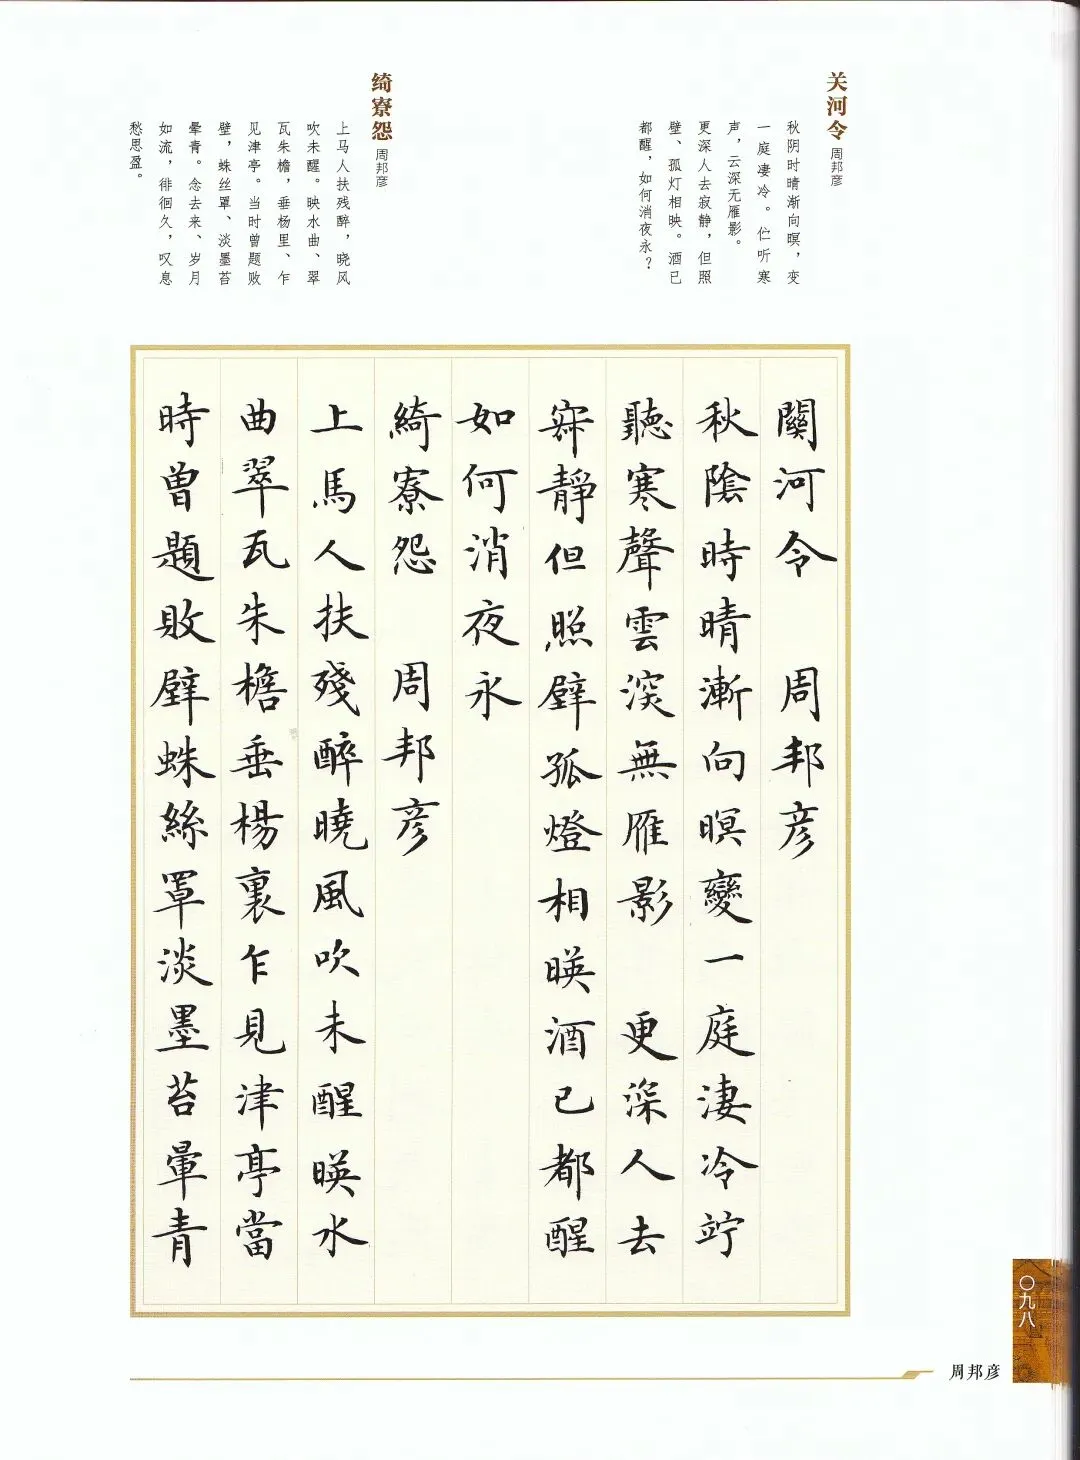 关河令 周邦彦
秋阴时晴渐向暝，变
一庭凄冷。伫听寒
声，云深无雁影。
更深人去寂静，但照
壁、孤灯相映。酒已
都醒，如何消夜永？
绮寮怨 周邦彦
上马人扶残醉，晓风
吹未醒。映水曲、翠
瓦朱檐，垂杨里、乍
见津亭。当时曾题败
壁，蛛丝罩、淡墨苔
晕青。念去来、岁月
如流，徘徊久，叹息
愁思盈。
關河令 周邦彦
秋陰時晴漸向暝變一庭淒冷竚
聽寒聲雲深無雁影 更深人去
寂靜但照壁孤燈相暎酒已都醒
如何消夜永
綺寮怨 周邦彦
上馬人扶殘醉曉風吹未醒暎水
曲翠瓦朱檐垂楊裏乍見津亭當
時曾題敗壁蛛絲罩淡墨苔暈青
〇九八
周邦彦